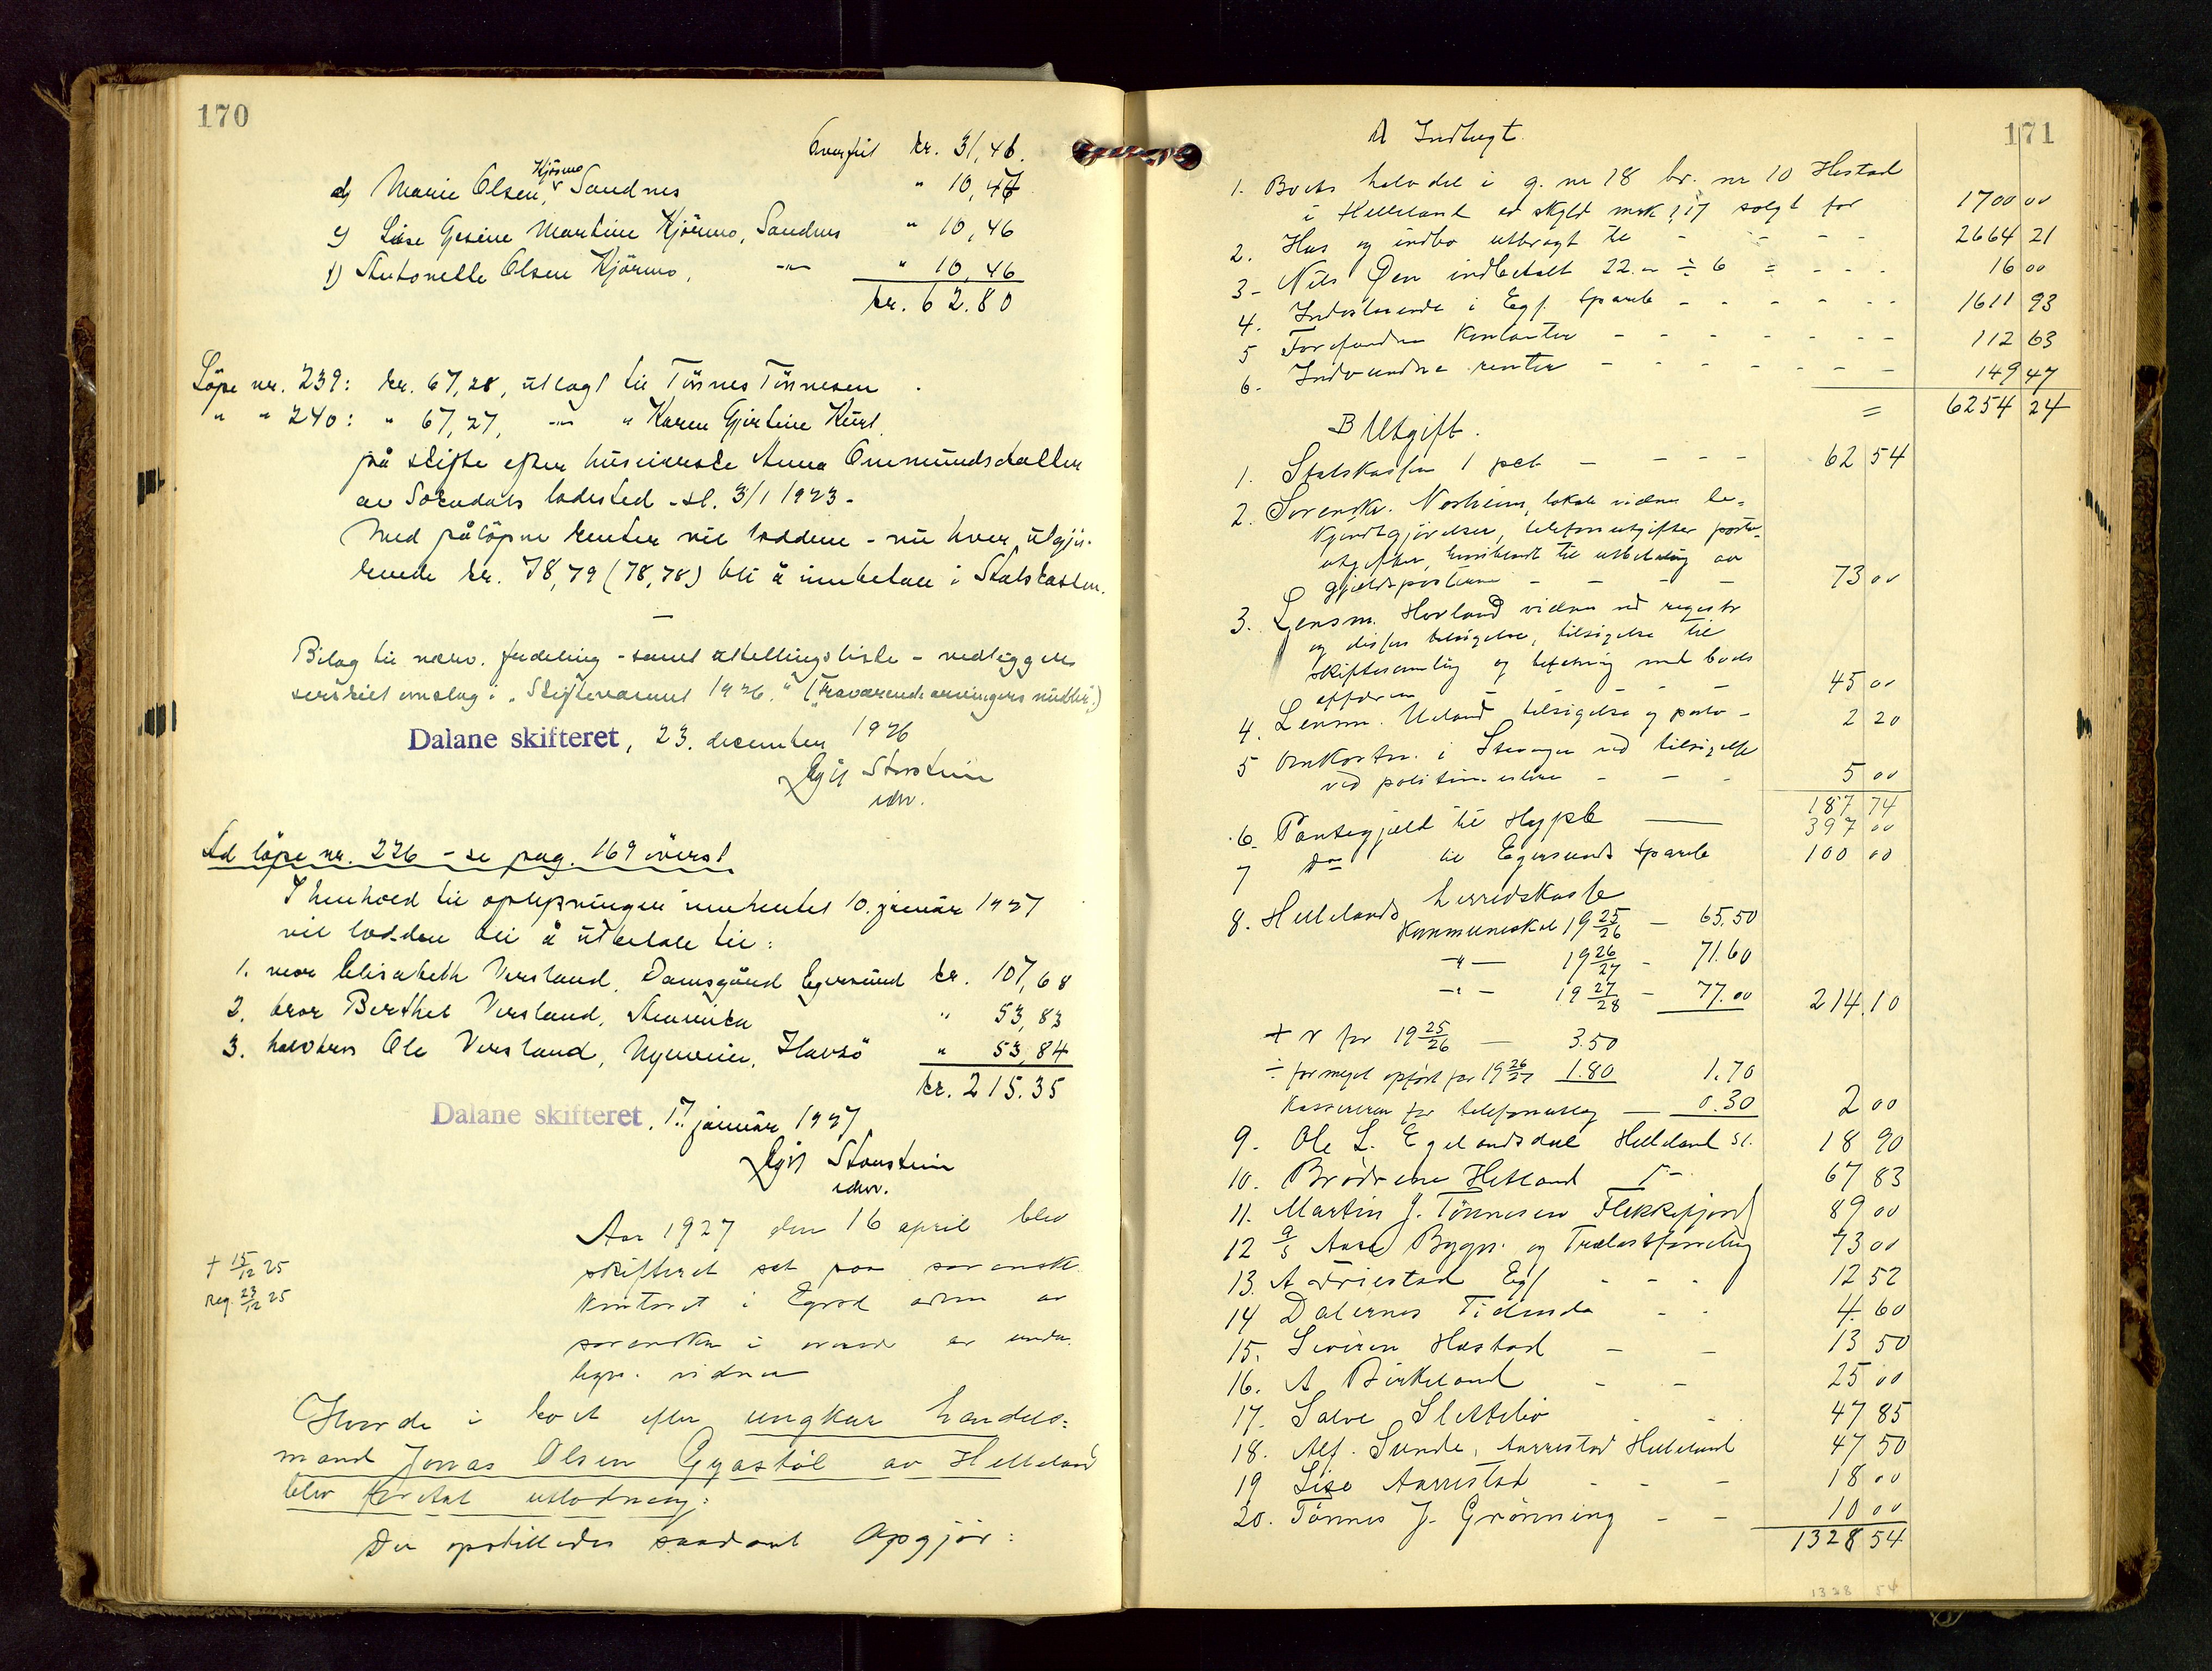 170
Overført kr. 31,46.
d) Marie Olsen Kjörmo, Sandnes " 10,42
e) Lise Gesine Martine Kjörmo, Sandnes " 10,46
f) Antonelle Olsen Kjörmo, -"- " 10,46
kr. 62.80
Löpe nr. 239: kr. 67,28, utlagt til Tönnes Tönnesen
" " 240: " 67,27, -"- " Karen Gjertine
på skifte efter huseierske Anna Onemundsdatter
av Sogndals ladested - sl. 3/1 1923 -
Med påløpne renter vil loddene - nu hver utgjö-
rende kr. 78,79 (78,78) bli å innbetale i Statskassen.
Bilag til nærv. fordeling - samt utstillingsliste - vedligger
særskilt omslag i "Skiftevæsenet 1926." (Fraværende arvingers midler)
Dalane skifteret, 23. december 1926
Egil Storstein
edv.
Ad löpe nr. 226 - se pag. 169 överst
I henhold til oplysninger innhentet 10. januar 1927
vil lodden bli å utbetale til:
1. mor Elisabeth Versland, Damsgård Egersund kr. 107,68
2. bror Berthel Versland, Amerika " 53,83
3. halvbror Ole Versland, Nyeveien, " 53,84
kr. 215.35
Dalane skifteret, 17. januar 1927
Egil Storstein
edv.
Aar 1927 den 16 april blev
skifteret sat paa sorensk.
kontoret i Egrsd adm av
sorenskr i nærvær av under-
tegn. vidner
+ 15/12 25
Reg. 23/12 25
Hvorde i boet efter ungkar handels-
mand Jonas Olsen Gyastøl av Helleland
blev foretat utlodning:
Der opstilledes saadant Opgjør:
171
A Indtægt.
1. Boets halvdel i g. nr 18 br. nr 10 Hestad
i Helleland av skyld mrk 1,17 solgt for 1700 00
2. Hus og indbo utbragt til - - - - 2664 21
3 - Nils Øen indbetalt 22.- ÷ 6 = - - - 16 00
4. Indestaaende i Egs. Spareb - - - - - 1611 93
5 Forefundne Kontanter - - - - - - - 112 63
6. Indvundne renter - - - - - - - 149 47
= 6254 24
B Utgift.
1. Statskassen 1 pct - - - - 62 54
2. Sorenskr. Norheim, lokale vidner be-
kjendtgjørelser, telefonutgifter porto-
utgifter, til utbetaling av
gjældsposterne - - - - 73 00
3. Lensm. Hovland vidner ved registr
og tilsigelse, tilsigelse til
skiftesamling og befatning med boets
- - - 45 00
4. Lensm. Ueland tilsigelse og porto - 2 20
5 i Stavanger ved tilsigelse
ved politim. - - - 5 00
187 74
6. Pantegjæld til Hypb 397 00
7 Do til Egersunds Spareb 100 00
8. Hellelands herredskasse
Kommuneskat 19 25/26 - 65.50
-"- 19 26/27 - 71.60
-"- 19 27/28 - 77.00 214.10
+ r for 19 25/26 - 3.50
÷ formeget opført for 19 26/27 1.80 1.70
Kassereren for telefonutlæg - 0.30 2 00
9. Ole L. Egelandsdal Helleland st. 18 90
10. Brødrene Hetland -"- 67 83
11. Martin J. Tönnesen Flekkefjord 89 00
12 A/S Aase Bygn. og Trælastforretning 73 00
13. A Friestad Egs - - - 12 52
14 Dalernes Tidende - - 4 60
15. Severin Hestad - - 13 50
16. A Birkeland - - 25 00
17. Salve Slettebø - - 47 85
18. Alf. Sunde, Aarrestad Helleland 47 50
19 Lise Aarrestad - - - 18 00
20. Tönnes J. Grönning - - 10 00
1328 54
1328 54